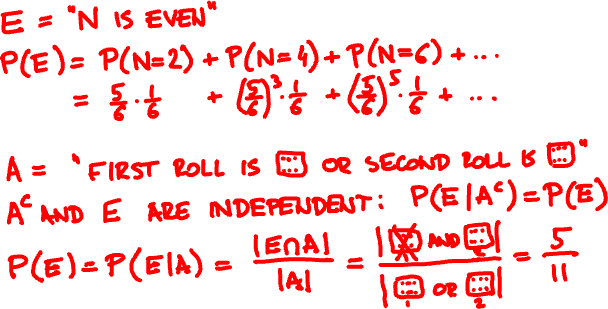 E = "N IS EVEN"
P(E) = P(N=2) + P(N=4) + P(N=6) + ...
= 5/6 · 1/6 + (5/6)³ · 1/6 + (5/6)⁵ · 1/6 + ...
A = "FIRST ROLL IS ⚅ OR SECOND ROLL IS ⚅"
Aᶜ AND E ARE INDEPENDENT: P(E|Aᶜ) = P(E)
P(E) = P(E|A) = |E∩A| / |A| = |⚅̸₁ AND ⚅₂| / |⚅₁ OR ⚅₂| = 5/11